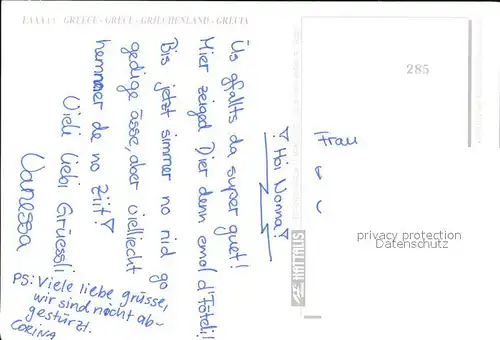 GREECE - GRECE - GRIECHENLAND - GRECIA
285
! Hoi Nonna!
Üs gfallts da super guet!
Mier zeiged Dier denn emol d'Föteli!
Bis jetzt simmer no nid go
gedige ässe, aber vielliecht
hemmer de no Ziit!
Vieli liebi Grüessli
Vanessa
PS: Viele liebe grüsse,
wir sind nicht ab-
gestürzt.
CORINA
Frau
privacy protection
Datenschutz